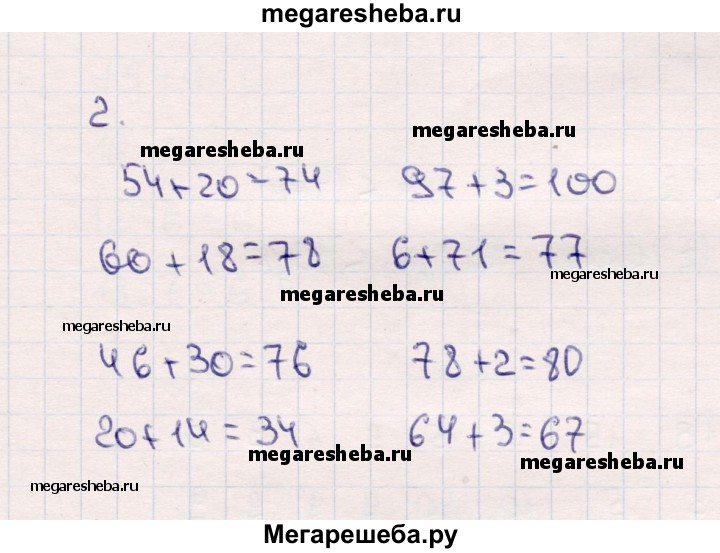 megaresheba.ru
2.
megaresheba.ru
megaresheba.ru
54+20=74 97+3=100
60+18=78 6+71=77
megaresheba.ru
megaresheba.ru
megaresheba.ru
46+30=76 78+2=80
20+14=34 64+3=67
megaresheba.ru
megaresheba.ru
megaresheba.ru
Мегарешеба.ру